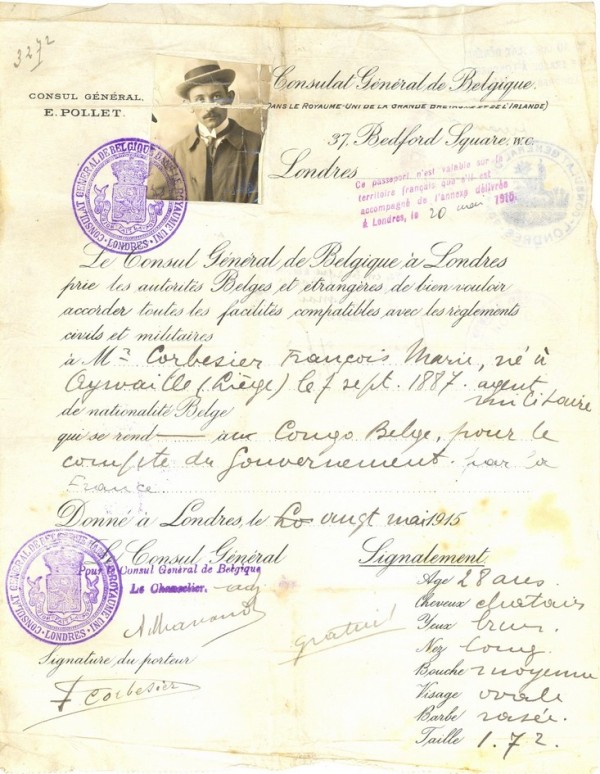 3272
CONSUL GÉNÉRAL.
E. POLLET.
Consulat Général de Belgique.
(DANS LE ROYAUME-UNI DE LA GRANDE BRETAGNE ET DE L'IRLANDE)
37, Bedford Square, W.C.
Londres
Ce passeport n'est valable sur le
territoire français que s'il est
accompagné de l'annexe délivrée
à Londres, le 20 mai 1915.
CONSULAT GÉNÉRAL DE BELGIQUE DANS LE ROYAUME UNI
LONDRES
Le Consul Général de Belgique à Londres
prie les autorités Belges et étrangères de bien vouloir
accorder toutes les facilités compatibles avec les règlements
civils et militaires
à Mr Corbesier François Marie, né à
Aywaille (Liège) le 7 sept. 1887. agent
militaire
de nationalité Belge
qui se rend aux Congo Belge, pour le
compte du Gouvernement. par la
France.
Donné à Londres, le vingt mai 1915
Le Consul Général
Pour le Consul Général de Belgique
Le Chancelier. adj
Signature du porteur
F Corbesier
gratuit
CONSULAT GÉNÉRAL DE BELGIQUE DANS LE ROYAUME UNI
LONDRES
Signalement
Age 28 ans.
Cheveux chatains
Yeux brun.
Nez long.
Bouche moyenne
Visage ovale
Barbe rasée.
Taille 1.72.